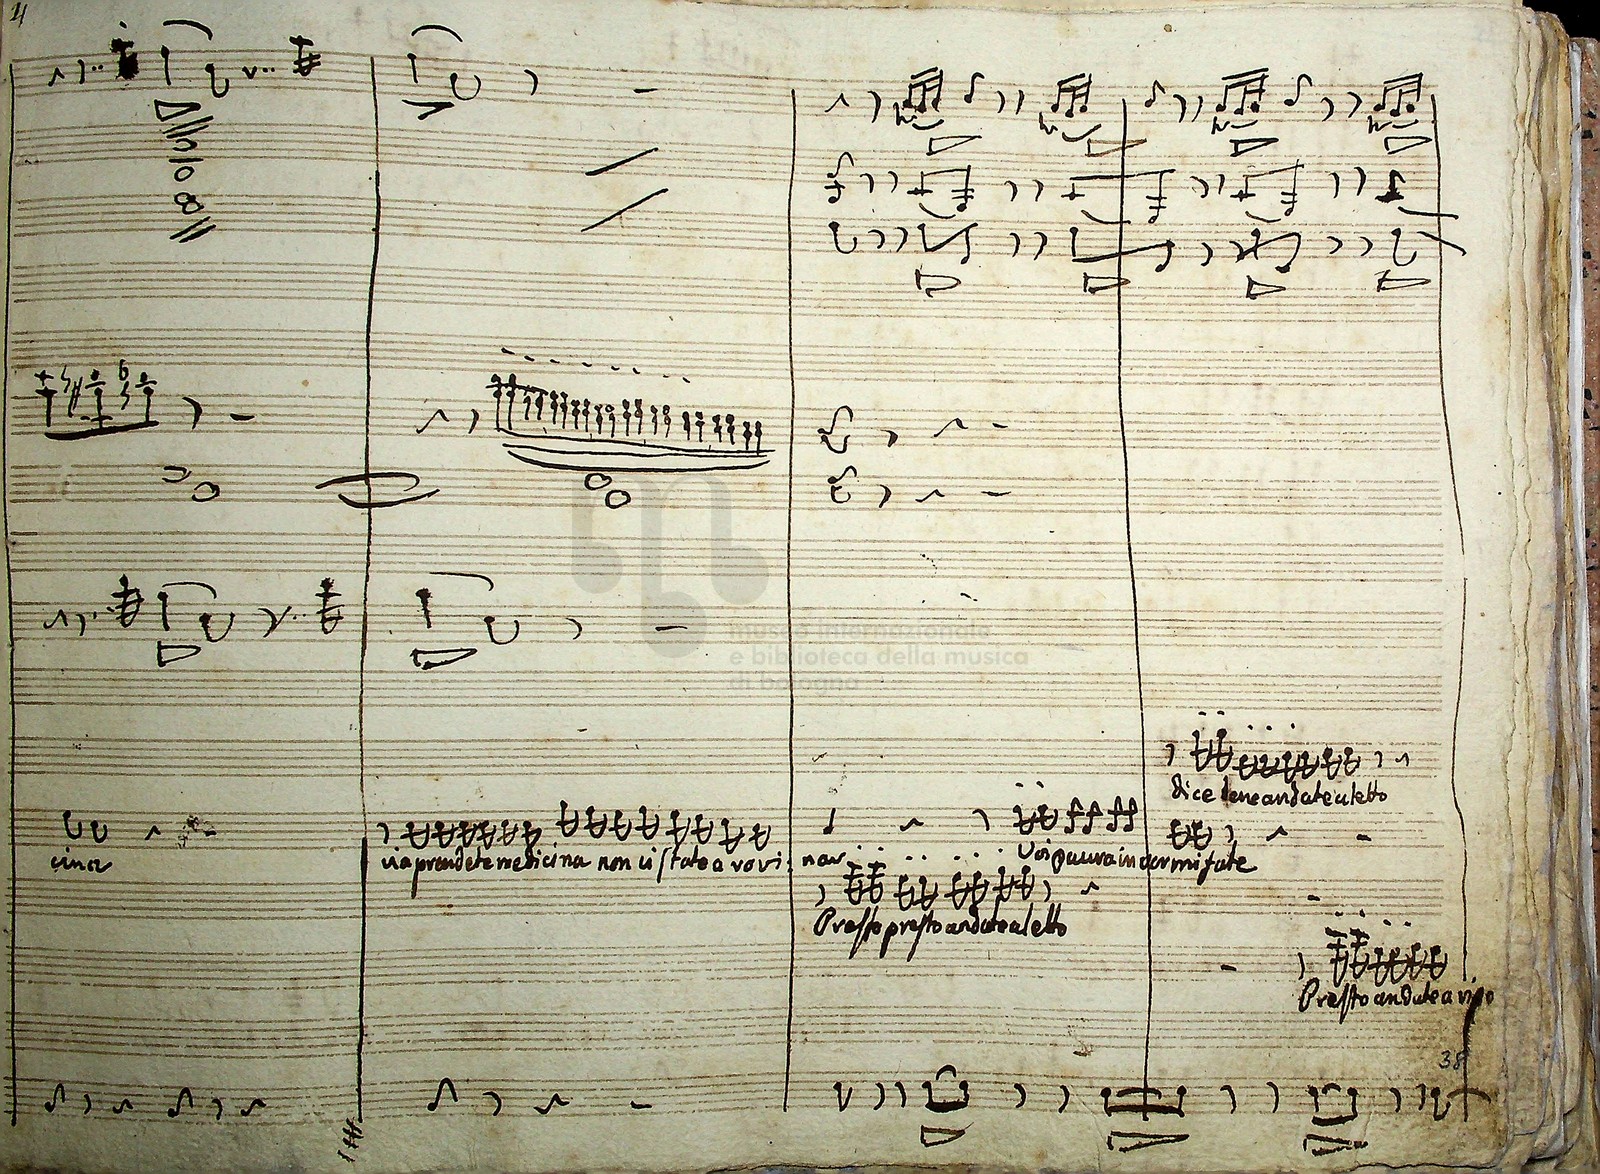 museo internazionale
e biblioteca della musica
di bologna
dice bene andate a letto
cina
via prendete medicina non vi state a rovi:
nar.
Voi paura in dormi fate
Presto presto andate a letto
Presto andate a vi
38